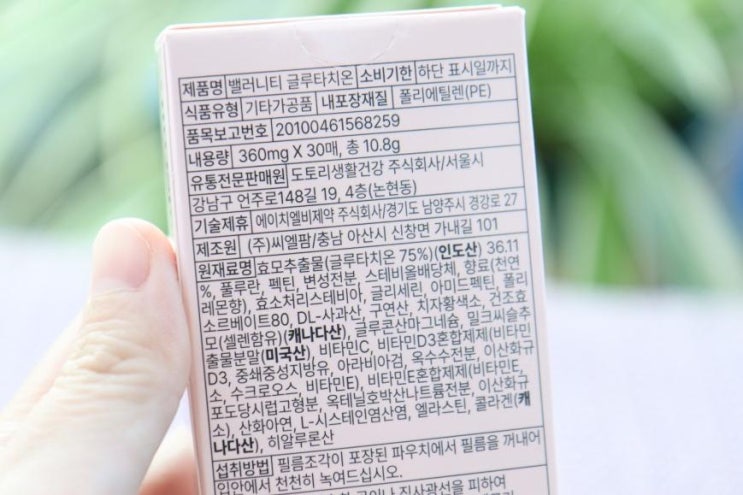 제품명 밸러니티 글루타치온 소비기한 하단 표시일까지
식품유형 기타가공품 내포장재질 폴리에틸렌(PE)
품목보고번호 20100461568259
내용량 360mg X 30매, 총 10.8g
유통전문판매원 도토리생활건강 주식회사/서울시
강남구 언주로148길 19, 4층(논현동)
기술제휴 에이치엘비제약 주식회사/경기도 남양주시 경강로 27
제조원 (주)씨엘팜/충남 아산시 신창면 가내길 101
원재료명 효모추출물(글루타치온 75%)(인도산) 36.11
%, 풀루란, 펙틴, 변성전분, 스테비올배당체, 향료(천연
레몬향), 효소처리스테비아, 글리세린, 아미드펙틴, 폴리
소르베이트80, DL-사과산, 구연산, 치자황색소, 건조효
모(셀렌함유)(캐나다산), 글루콘산마그네슘, 밀크씨슬추
출물분말(미국산), 비타민C, 비타민D3혼합제제(비타민
D3, 중쇄중성지방유, 아라비아검, 옥수수전분, 이산화규
소, 수크로오스, 비타민E), 비타민E혼합제제(비타민E,
포도당시럽고형분, 옥테닐호박산나트륨전분, 이산화규
소), 산화아연, L-시스테인염산염, 엘라스틴, 콜라겐(캐
나다산), 히알루론산
섭취방법 필름조각이 포장된 파우치에서 필름을 꺼내어
입안에서 천천히 녹여드십시오.
직사광선을 피하여